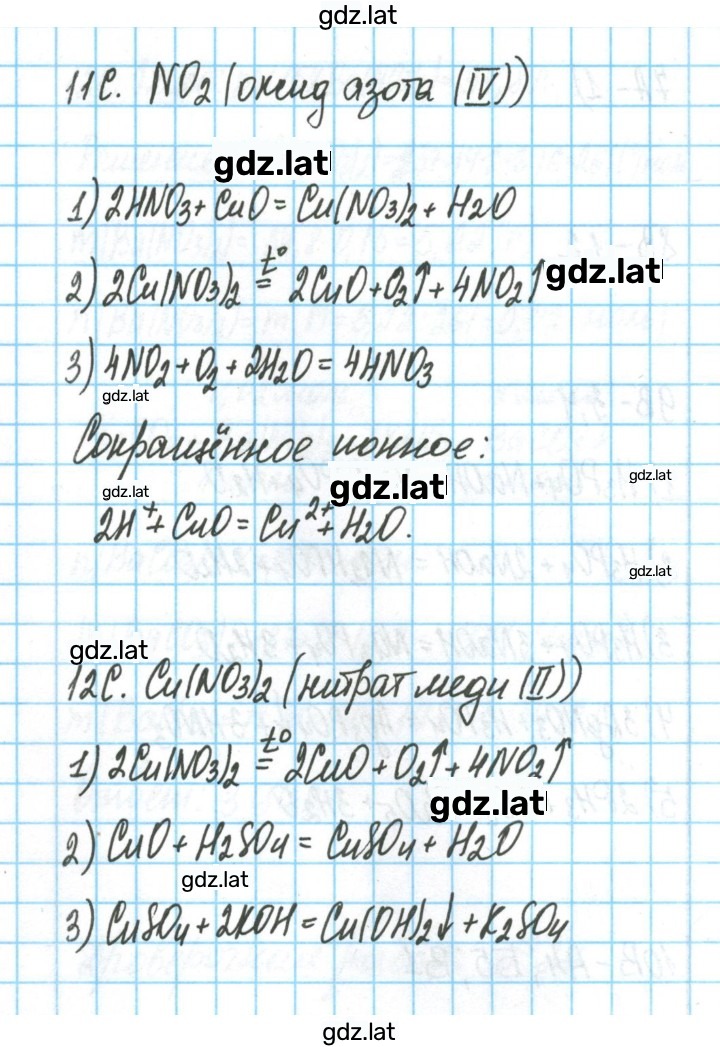 gdz.lat
11С. NO2 (оксид азота (IV))
gdz.lat
1) 2HNO3 + CuO = Cu(NO3)2 + H2O
2) 2Cu(NO3)2 t° = 2CuO + O2↑ + 4NO2↑ gdz.lat
3) 4NO2 + O2 + 2H2O = 4HNO3
gdz.lat
Сокращённое ионное:
gdz.lat
gdz.lat
gdz.lat
2H⁺ + CuO = Cu²⁺ + H2O.
gdz.lat
gdz.lat
12С. Cu(NO3)2 (нитрат меди (II))
1) 2Cu(NO3)2 t° = 2CuO + O2↑ + 4NO2↑
gdz.lat
2) CuO + H2SO4 = CuSO4 + H2O
gdz.lat
3) CuSO4 + 2KOH = Cu(OH)2↓ + K2SO4
gdz.lat